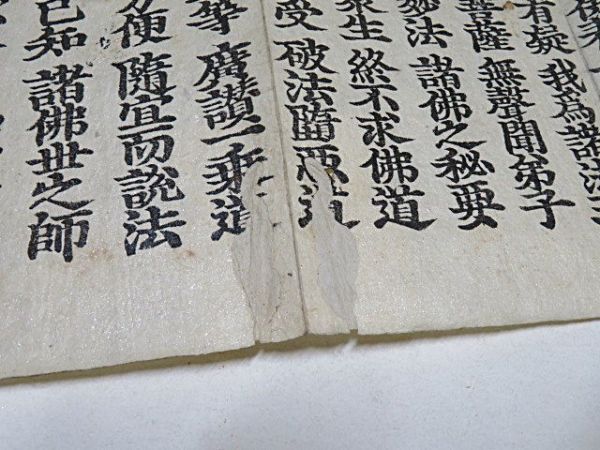 我為諸法王
有疑 無聲聞弟子
菩薩
妙法 諸佛之秘要
衆生 終不求佛道
受 破法墮惡道
等 廣讃一乘道
方便 隨宜而說法
已知 諸佛世之師